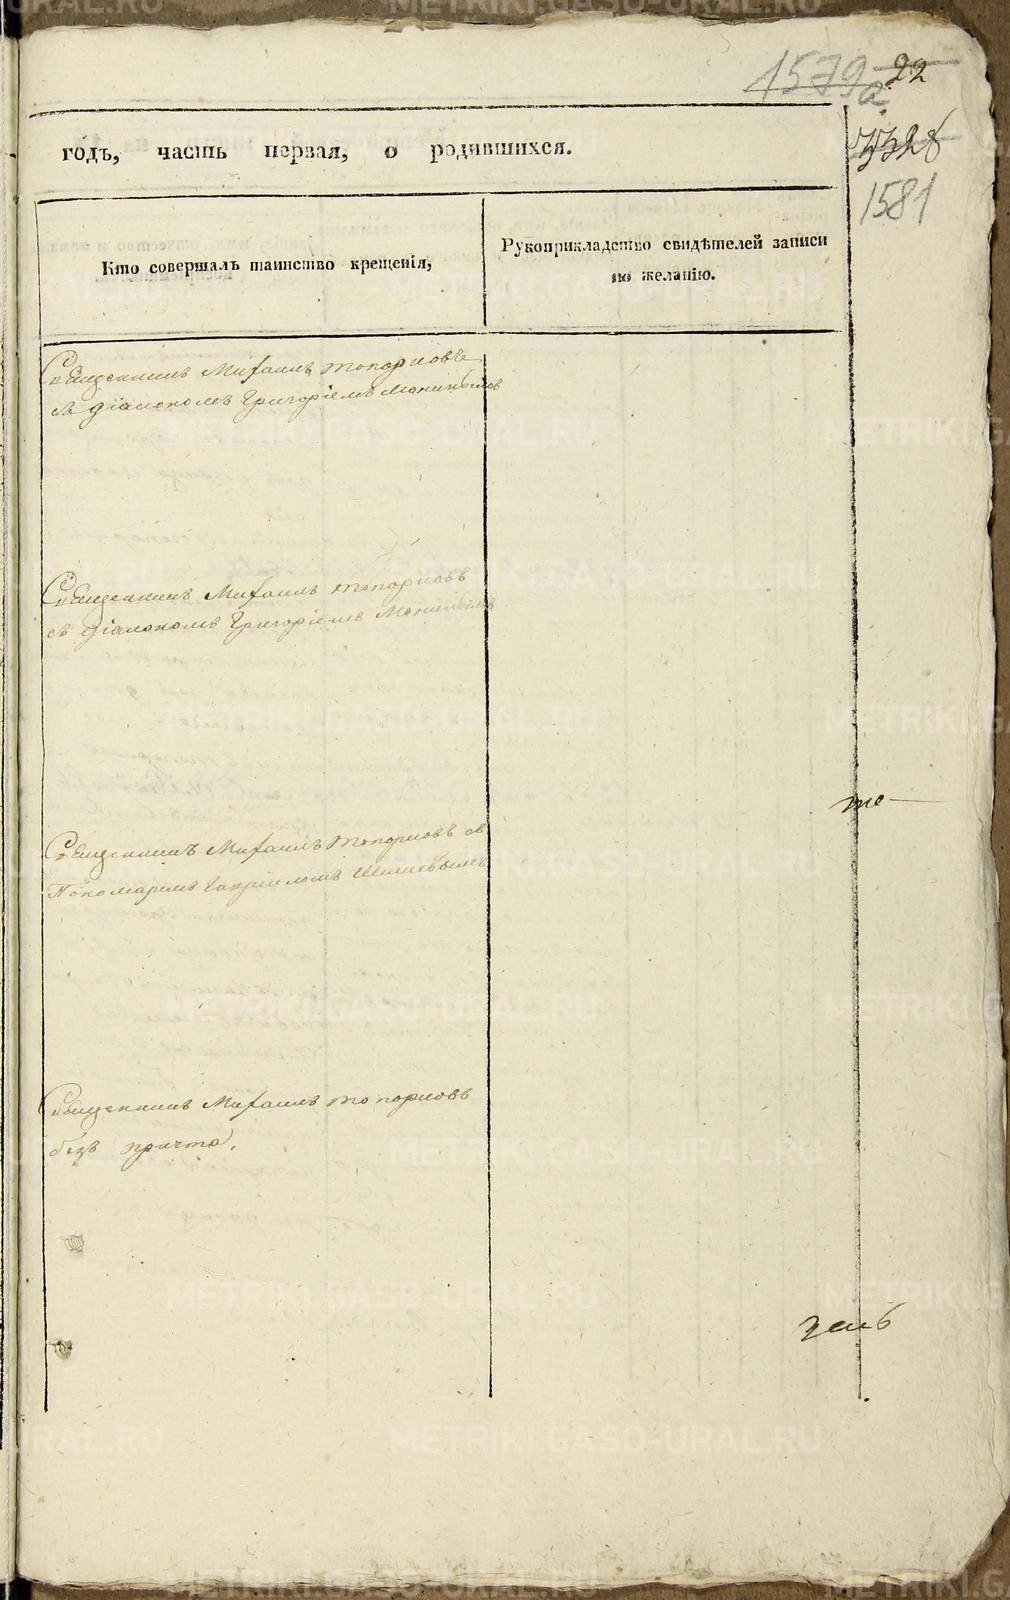 1579а 22
1581
годъ, часть первая, о родившихся.
Кто совершалъ таинство крещенія,
Рукоприкладство свидѣтелей записи
по желанію.
Священникъ Михаилъ Топорковъ
съ діакономъ Григоріемъ
Священникъ Михаилъ Топорковъ
съ діакономъ Григоріемъ
Священникъ Михаилъ Топорковъ съ
Пономаремъ Гавріиломъ
Священникъ Михаилъ Топорковъ
безъ причта.
METRIKI.GASO-URAL.RU